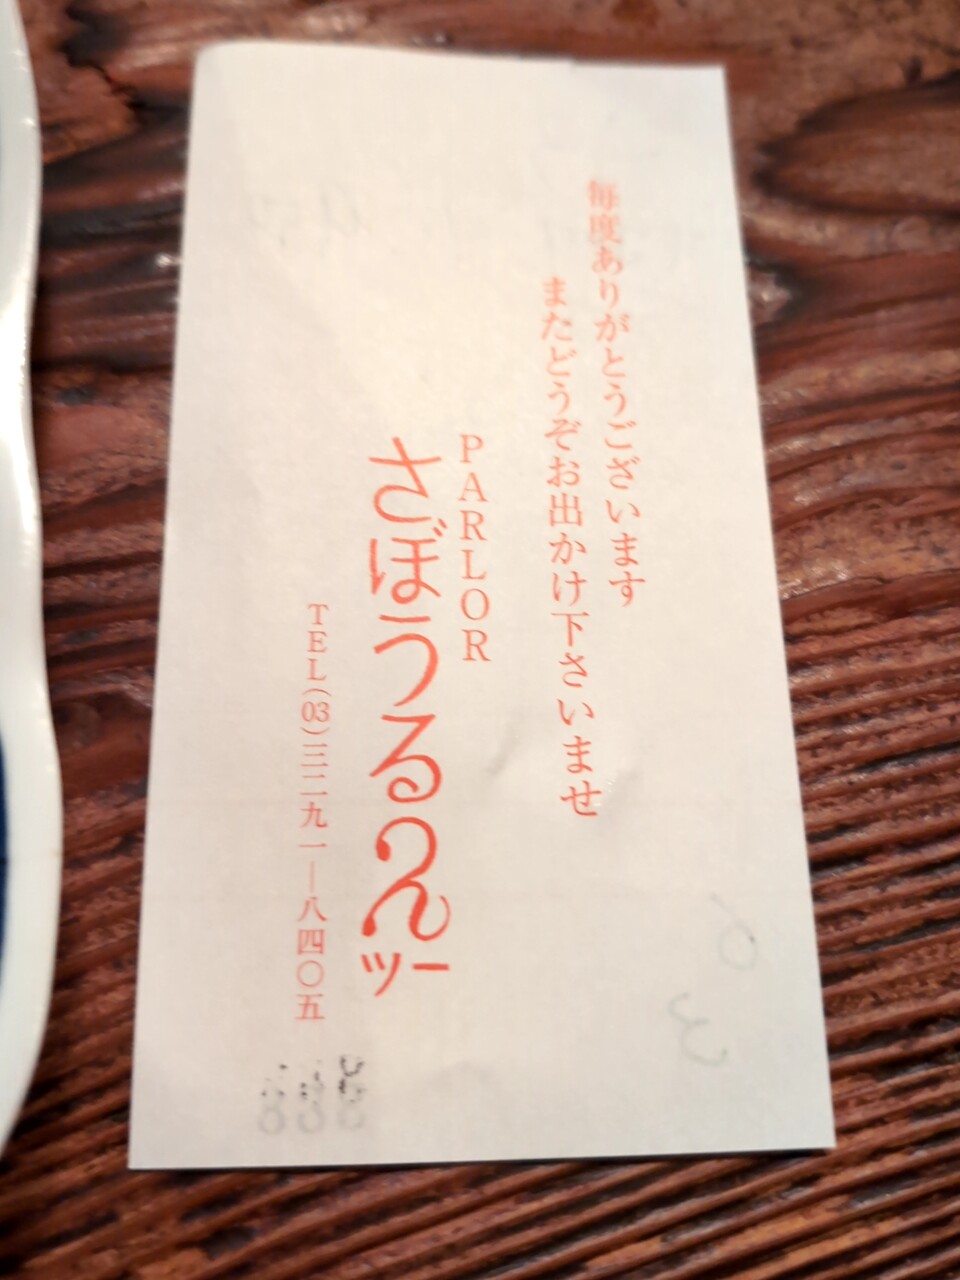 毎度ありがとうございます
またどうぞお出かけ下さいませ
PARLOR
さぼうる2
ツー
TEL(03)三二九一―八四〇五